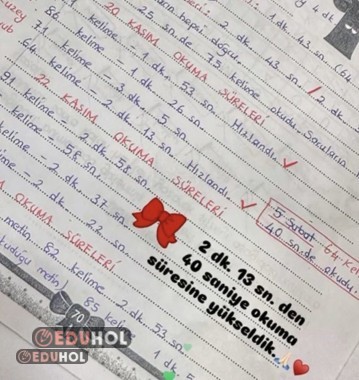 uzey
2 dk.
4 dk
hepsi doğru.
1 dk. 43 sn. (64
25 sn. de 75 kelime okudu. Soruların
20 KASIM OKUMA SÜRELERİ
86 kelime - 1 dk. 53 sn. Hızlandı. ✓
43 sn. / 2 dk.
71 kelime - 3 dk. 26 sn.
64 kelime - 1 dk. 5 sn.
91 kelime - 2 dk. 13 sn. Hızlandı. ✓
22 KASIM OKUMA SÜRELERİ
kelime - 2 dk. 58 sn.
kelime - 58 sn.
kelime - 2 dk. 37 sn.
2 dk. 22 sn.
5 Şubat - 64 ke
40 sn. de okudu.
OKUMA SÜRELERİ
metin 82 kelime 2 dk. 53 sn.
okuduğu metin) 85 keli
1 dk. 5
70
2 dk. 13 sn. den
40 saniye okuma
süresine yükseldik..
EDUHOL
EDUHOL